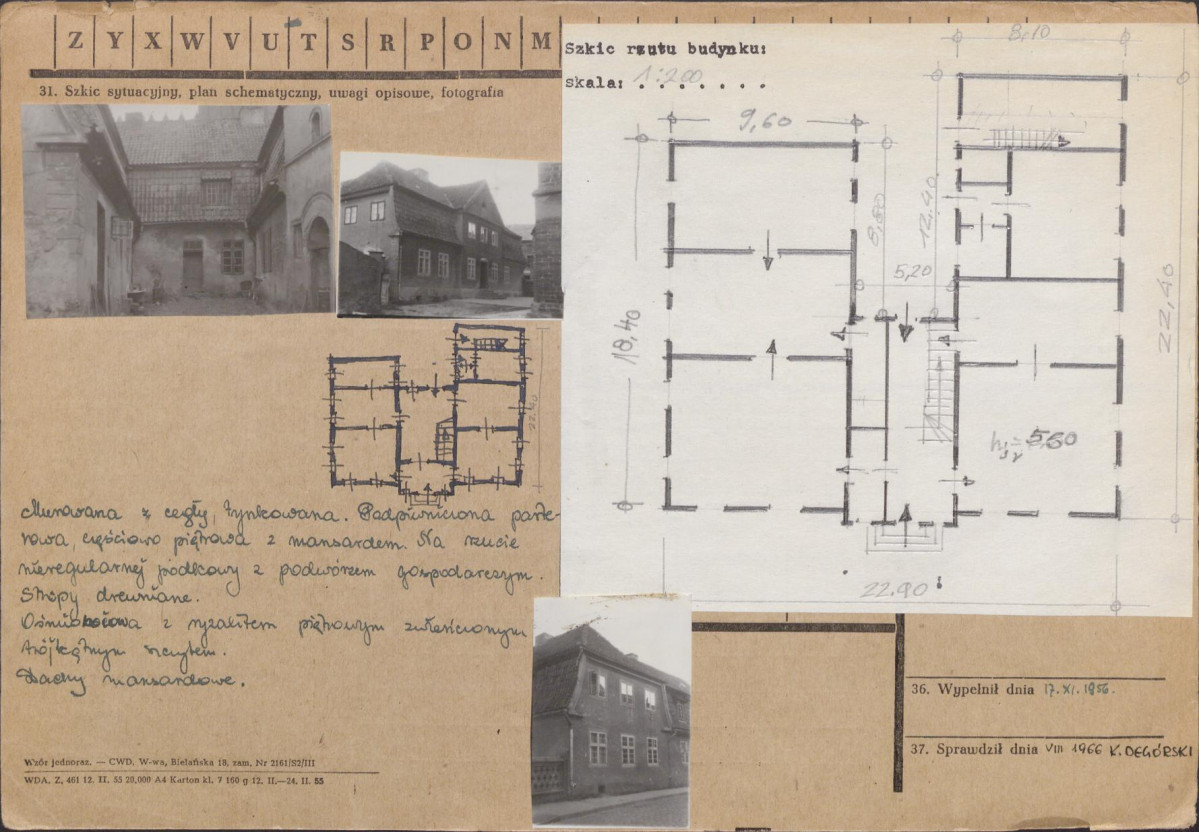 Z Y X W V U T S R P O N M
31. Szkic sytuacyjny, plan schematyczny, uwagi opisowe, fotografia
Szkic rzutu budynku:
skala: 1:200
8,10
9,60
8,80
12,40
5,20
18,40
22,40
22.90
22.40
Murowana z cegły, tynkowana. Podpiwniczona parte-
rowa, częściowo piętrowa z mansardem. Na rzucie
nieregularnej podkowy z podwórzem gospodarczym.
Stropy drewniane.
Ośmioosiowa z ryzalitem piętrowym zwieńczonym
trójkątnym szczytem.
Dachy mansardowe.
Wzór jednoraz. — CWD, W-wa, Bielańska 18, zam. Nr 2161/S2/III
WDA. Z. 461 12. II. 55 20.000 A4 Karton kl. 7 160 g 12. II.—24. II. 55
36. Wypełnił dnia 17.XI.1956.
37. Sprawdził dnia VIII 1966 K. DEGÓRSKI